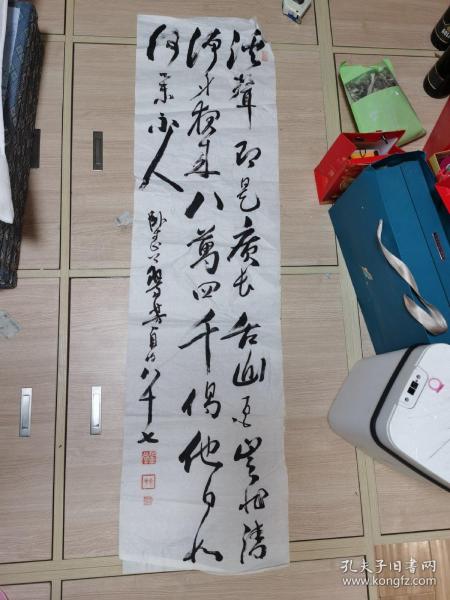 溪聲即是廣長舌山色豈非清
淨身夜來八萬四千偈他日如
何舉示人
八十七
孔夫子旧书网
www.kongfz.com